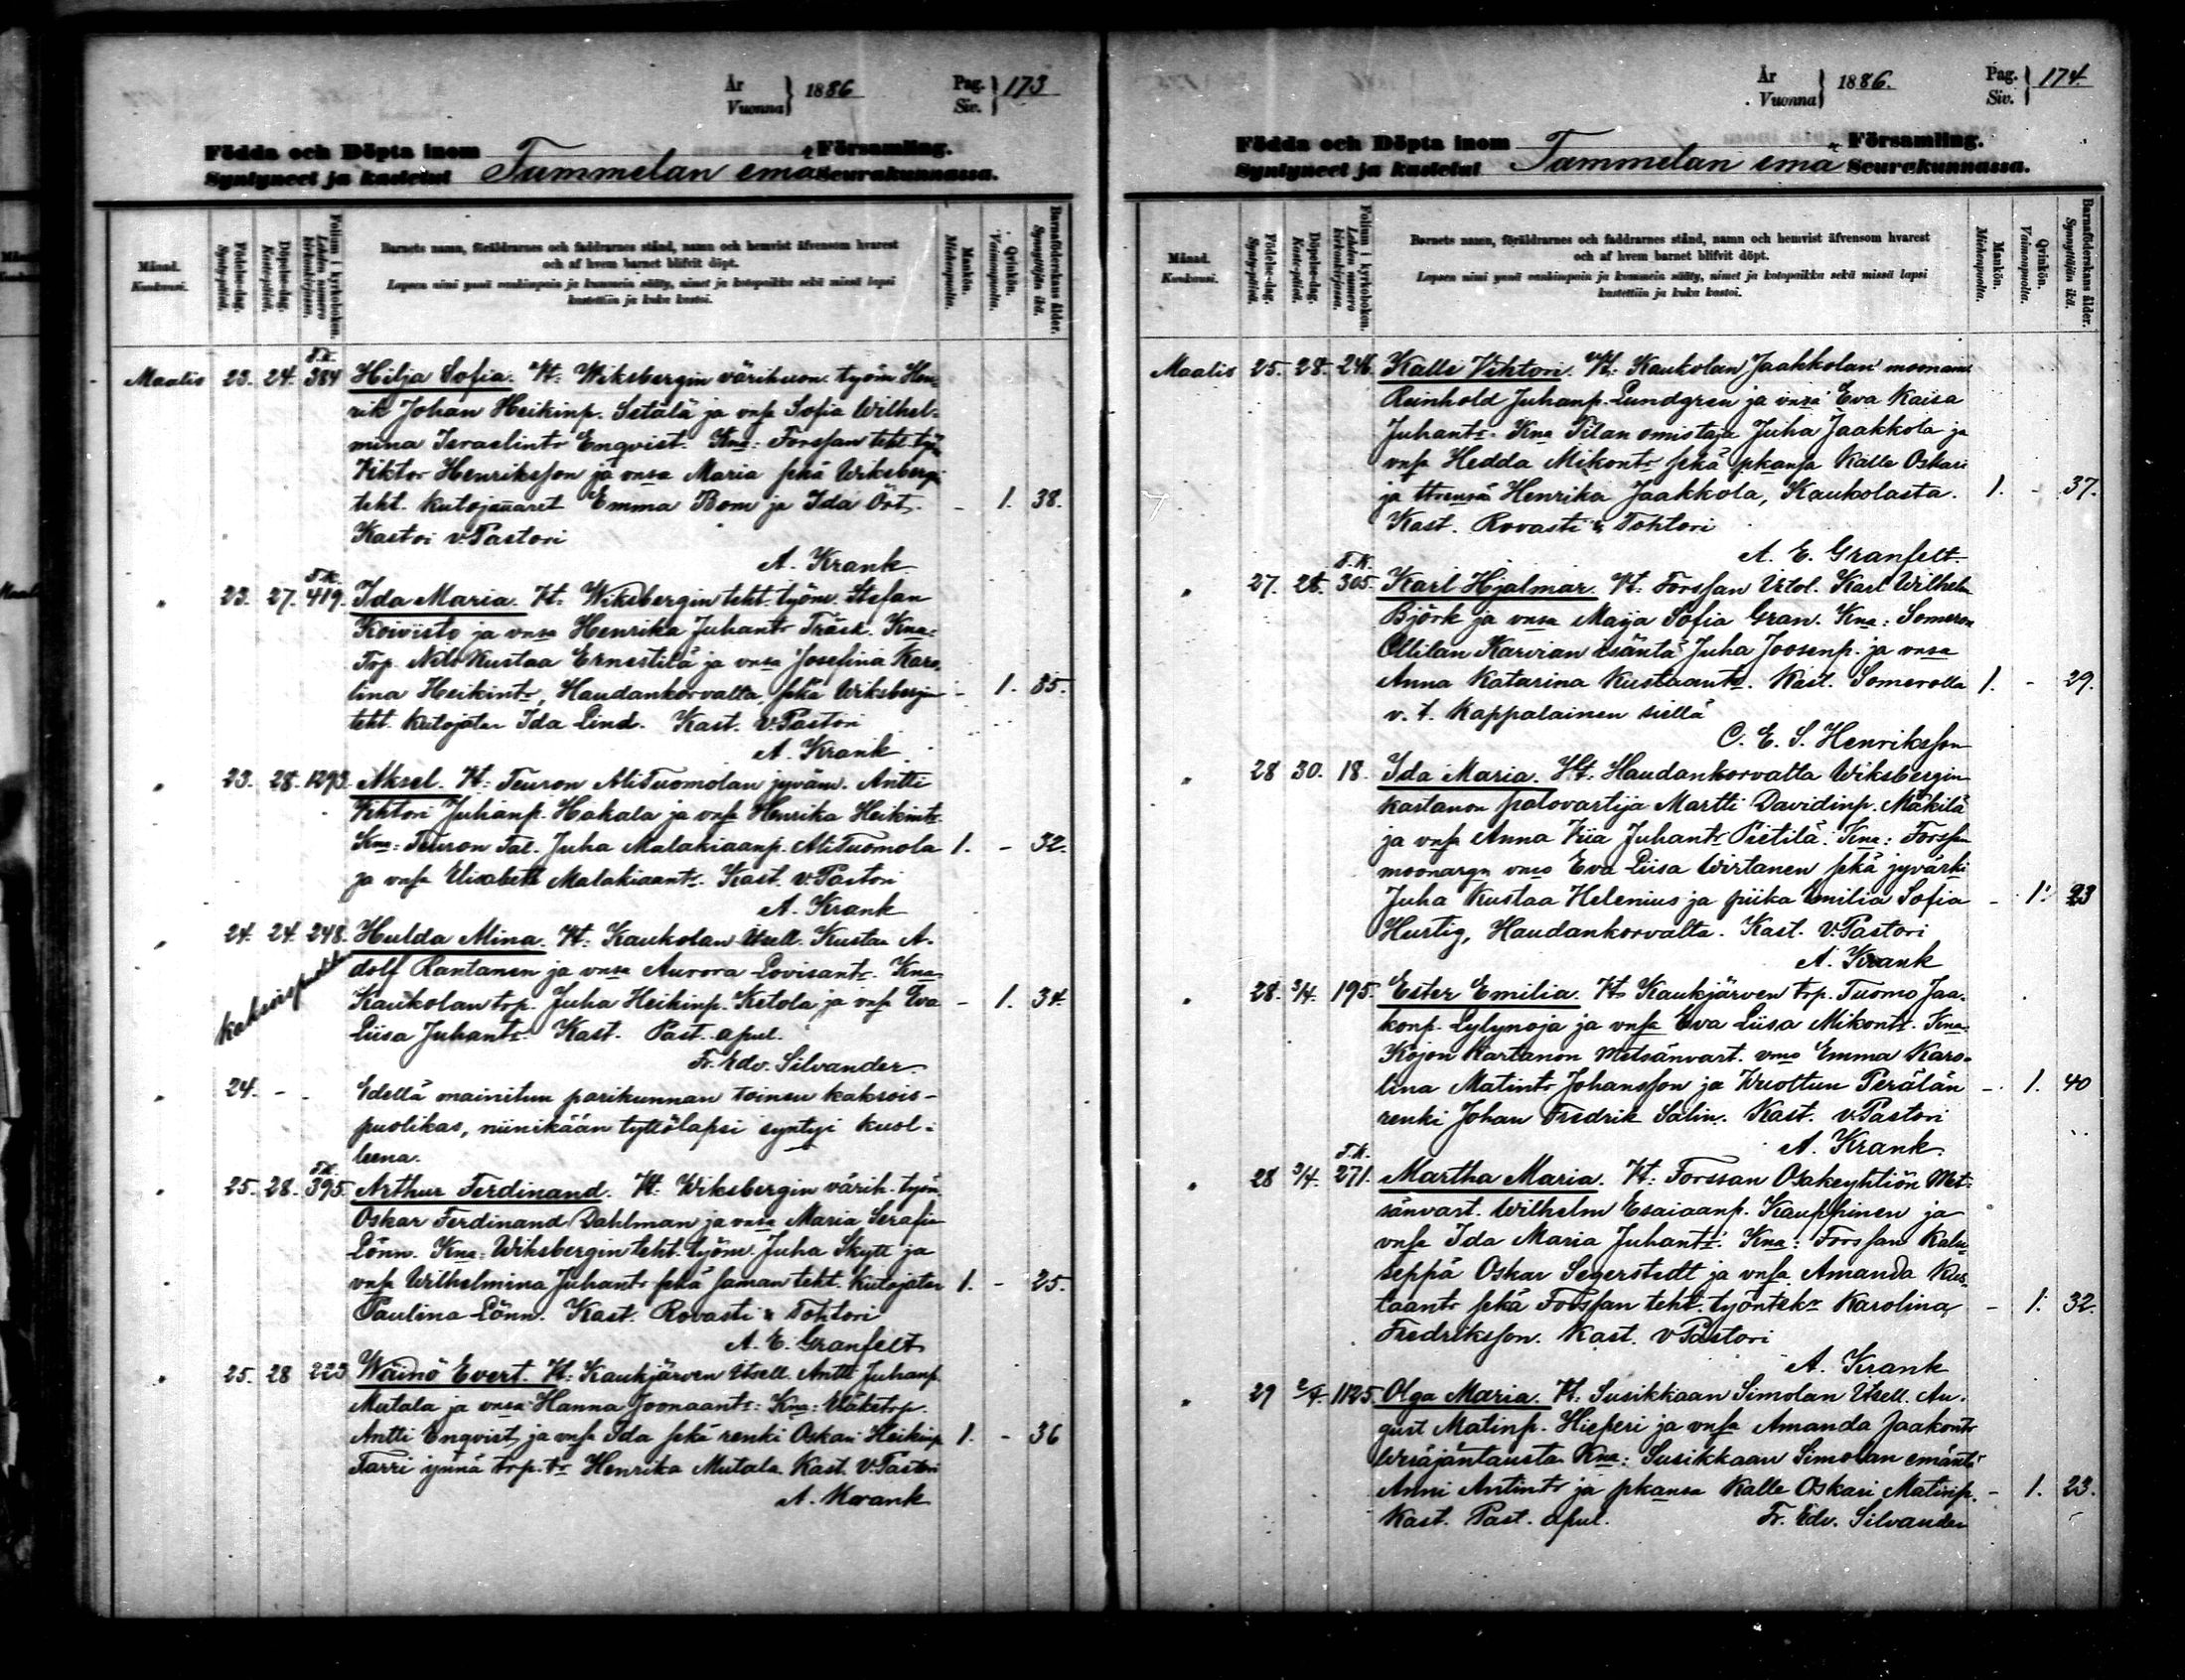 År
Vuonna } 1886 Pag.
Siv. } 173
Födda och Döpta inom Församling.
Syntyneet ja kastetut Tammelan emä Seurakunnassa.
Månad. Kuukausi.
Födelse-dag. Synty-päivä.
Döpelse-dag. Kaste-päivä.
Folium i kyrkoboken. Lehden numero kirkonkirjassa.
Barnets namn, föräldrarnes och faddrarnes stånd, namn och hemvist äfvensom hvarest
och af hvem barnet blifvit döpt.
Lapsen nimi ynnä vanhinpain ja kummein sääty, nimet ja kotopaikka sekä missä lapsi
kastettiin ja kuka kastoi.
Mankön. Miehenpuolta.
Qvinkön. Vaimonpuolta.
Barnaföderskans ålder. Synnyttäjän ikä.
F.k.
Maalis 23. 24. 384 Hilja Sofia. Vt: Wiksbergin värihuon. työm Hen-
rik Johan Heikinp. Setälä ja vnsa Sofia Wilhel-
mina Israelintr Enqvist. Kna: Forssan teht. työ
Viktor Henriksson ja vnsa Maria sekä Wiksbergi
teht. kutojattaret Emma Bom ja Ida Öst. - 1. 38.
Kastoi v. Pastori
A. Krank
F.k.
" 23. 27. 419. Ida Maria. Vt. Wiksbergin teht. työm. Stefan
Koivisto ja vnsa Henrika Juhantr Träsk. Kna:
Trp. Nils Kustaa Ernestilä ja vnsa Josefina Karo-
lina Heikintr, Haudankorvalta, sekä Wiksbergin - 1. 35.
teht. kutojatar Ida Lind. Kast. v. Pastori
A. Krank
" 23. 28. 1293. Aksel. Vt: Teuron AliTuomolan jyväm. Antti
Vihtori Juhanp. Hakala ja vnsa Henrika Heikintr
Kna: Teuron Tal. Juha Malakiaanp. AliTuomola 1. - 32.
ja vnsa Elisabeth Malakiaantr. Kast. v. Pastori
A. Krank
" 24. 24. 248. Hulda Mina. Vt: Kaukolan Itsell. Kustaa A-
kaksoispuolikas
dolf Rantanen ja vnsa Aurora Lovisantr. Kna:
Kaukolan trp. Juha Heikinp. Ketola ja vnsa Eva - 1. 34.
Liisa Juhantr. Kast. Past. apul.
Fr. Edv. Silvander
" 24. - Edellä mainitun parikunnan toinen kaksois-
puolikas, niinikään tyttölapsi syntyi kuol-
leena.
F.k.
" 25. 28. 395. Arthur Ferdinand. Vt: Wiksbergin värih. työm.
Oskar Ferdinand Dahlman ja vnsa Maria Serafia
Lönn. Kna: Wiksbergin teht. työm. Juha Skytt ja
vnsa Wilhelmina Juhantr sekä saman teht. kutojatar 1. - 25.
Paulina Lönn. Kast. Rovasti & Tohtori
A. E. Granfelt
" 25. 28 223 Wäinö Evert. Vt: Kaukjärven Itsell. Antti Juhanp.
Mutala ja vnsa Hanna Joonaantr: Kna: Mäkitrp.
Antti Enqvist ja vnsa Ida sekä renki Oskari Heikinp 1. - 36
Tarri ynnä trp. tr Henrika Mutala. Kast. v. Pastori
A. Krank
År
Vuonna } 1886. Pag.
Siv. } 174.
Födda och Döpta inom Församling.
Syntyneet ja kastetut Tammelan emä Seurakunnassa.
Månad. Kuukausi.
Födelse-dag. Synty-päivä.
Döpelse-dag. Kaste-päivä.
Folium i kyrkoboken. Lehden numero kirkonkirjassa.
Barnets namn, föräldrarnes och faddrarnes stånd, namn och hemvist äfvensom hvarest
och af hvem barnet blifvit döpt.
Lapsen nimi ynnä vanhinpain ja kummein sääty, nimet ja kotopaikka sekä missä lapsi
kastettiin ja kuka kastoi.
Mankön. Miehenpuolta.
Qvinkön. Vaimonpuolta.
Barnaföderskans ålder. Synnyttäjän ikä.
Maalis 25. 28. 246. Kalle Vihtori. Vt: Kaukolan Jaakkolan muonam.
Reinhold Juhanp. Lundgren ja vnsa Eva Kaisa
Juhantr. Kna Tilan omistaja Juha Jaakkola ja
vnsa Hedda Mikontr sekä pkansa Kalle Oskari
ja ttrensä Henrika Jaakkola, Kaukolasta. 1. - 37.
Kast. Rovasti & Tohtori
A. E. Granfelt
F.K.
" 27. 28. 305. Karl Hjalmar. Vt: Forssan Irtol. Karl Wilhelm
Björk ja vnsa Maija Sofia Gran. Kna: Someron
Ollilan Karvian isäntä Juha Joosenp. ja vnsa
Anna Katarina Kustaantr. Kast. Somerolla 1. - 29.
v. t. Kappalainen siellä
C. E. S. Henriksson
" 28 30. 18. Ida Maria. Vt: Haudankorvalta Wiksbergin
kartanon palovartija Martti Davidinp. Mäkilä
ja vnsa Anna Viia Juhantr Pietilä. Kna: Forssan
vmo Eva Liisa Wirtanen sekä jyvärki
Juha Kustaa Helenius ja piika Emilia Sofia - 1. 23
Hurtig, Haudankorvalta. Kast. v. Pastori
A. Krank
" 28. 3/4. 195. Ester Emilia. Vt: Kaukjärven trp. Tuomo Jaa-
konp. Lylynoja ja vnsa Eva Liisa Mikontr. Kna:
Kojon Kartanon metsänvart. vmo Emma Karo-
lina Matintr Johansson ja Wuoltun Perälän - 1. 40
renki Johan Fredrik Salin. Kast. v. Pastori
A. Krank
F.k.
" 28 3/4. 271. Martha Maria. Vt: Forssan Osakeyhtiön Met-
sänvart. Wilhelm Esaiaanp. Kauppinen ja
vnsa Ida Maria Juhantr. Kna: Forssan Kalu-
seppä Oskar Segerstedt ja vnsa Amanda Kus-
taantr sekä Forssan teht. työntek. Karolina - 1. 32.
Fredriksson. Kast. v Pastori
A. Krank
" 29 2/4. 1125. Olga Maria. Vt: Susikkaan Simolan Itsell. Au-
gust Matinp. Hieperi ja vnsa Amanda Jaakontr
Kna: Susikkaan Simolan emäntä
Anni Antintr ja pkansa Kalle Oskari Matinp. - 1. 23.
Kast. Past. apul. Fr. Edv. Silvander